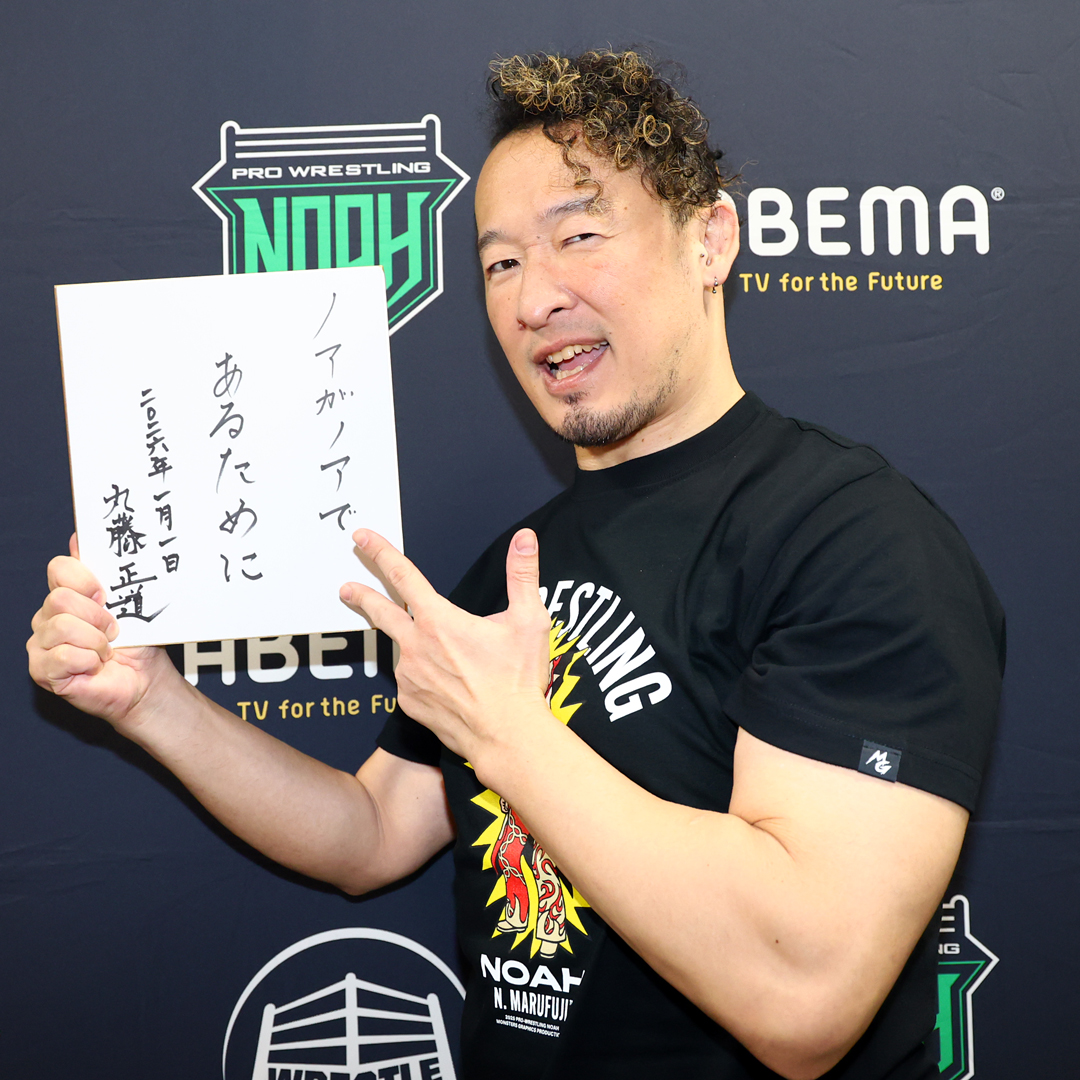 PRO WRESTLING
NOAH
ABEMA®
TV for the Future
ノアがノアで
あるために
二〇二六年一月一日
丸藤正道
ABEM
TV for the Fu
ESTLING
MG
NOAH
N. MARUFUJI
2025 PRO-WRESTLING NOAH
MONSTERS GRAPHICS PRODUCTI
WRESTLE
NG